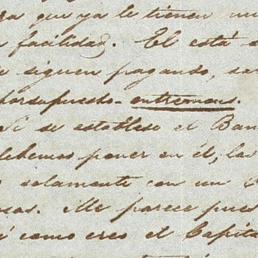 que ya le tienen
facilidad. El está
siguen pagando,
entremos.
se establese el Ban
debemos poner en él, las
solamente con un
Me parece pues
como creo el Capita